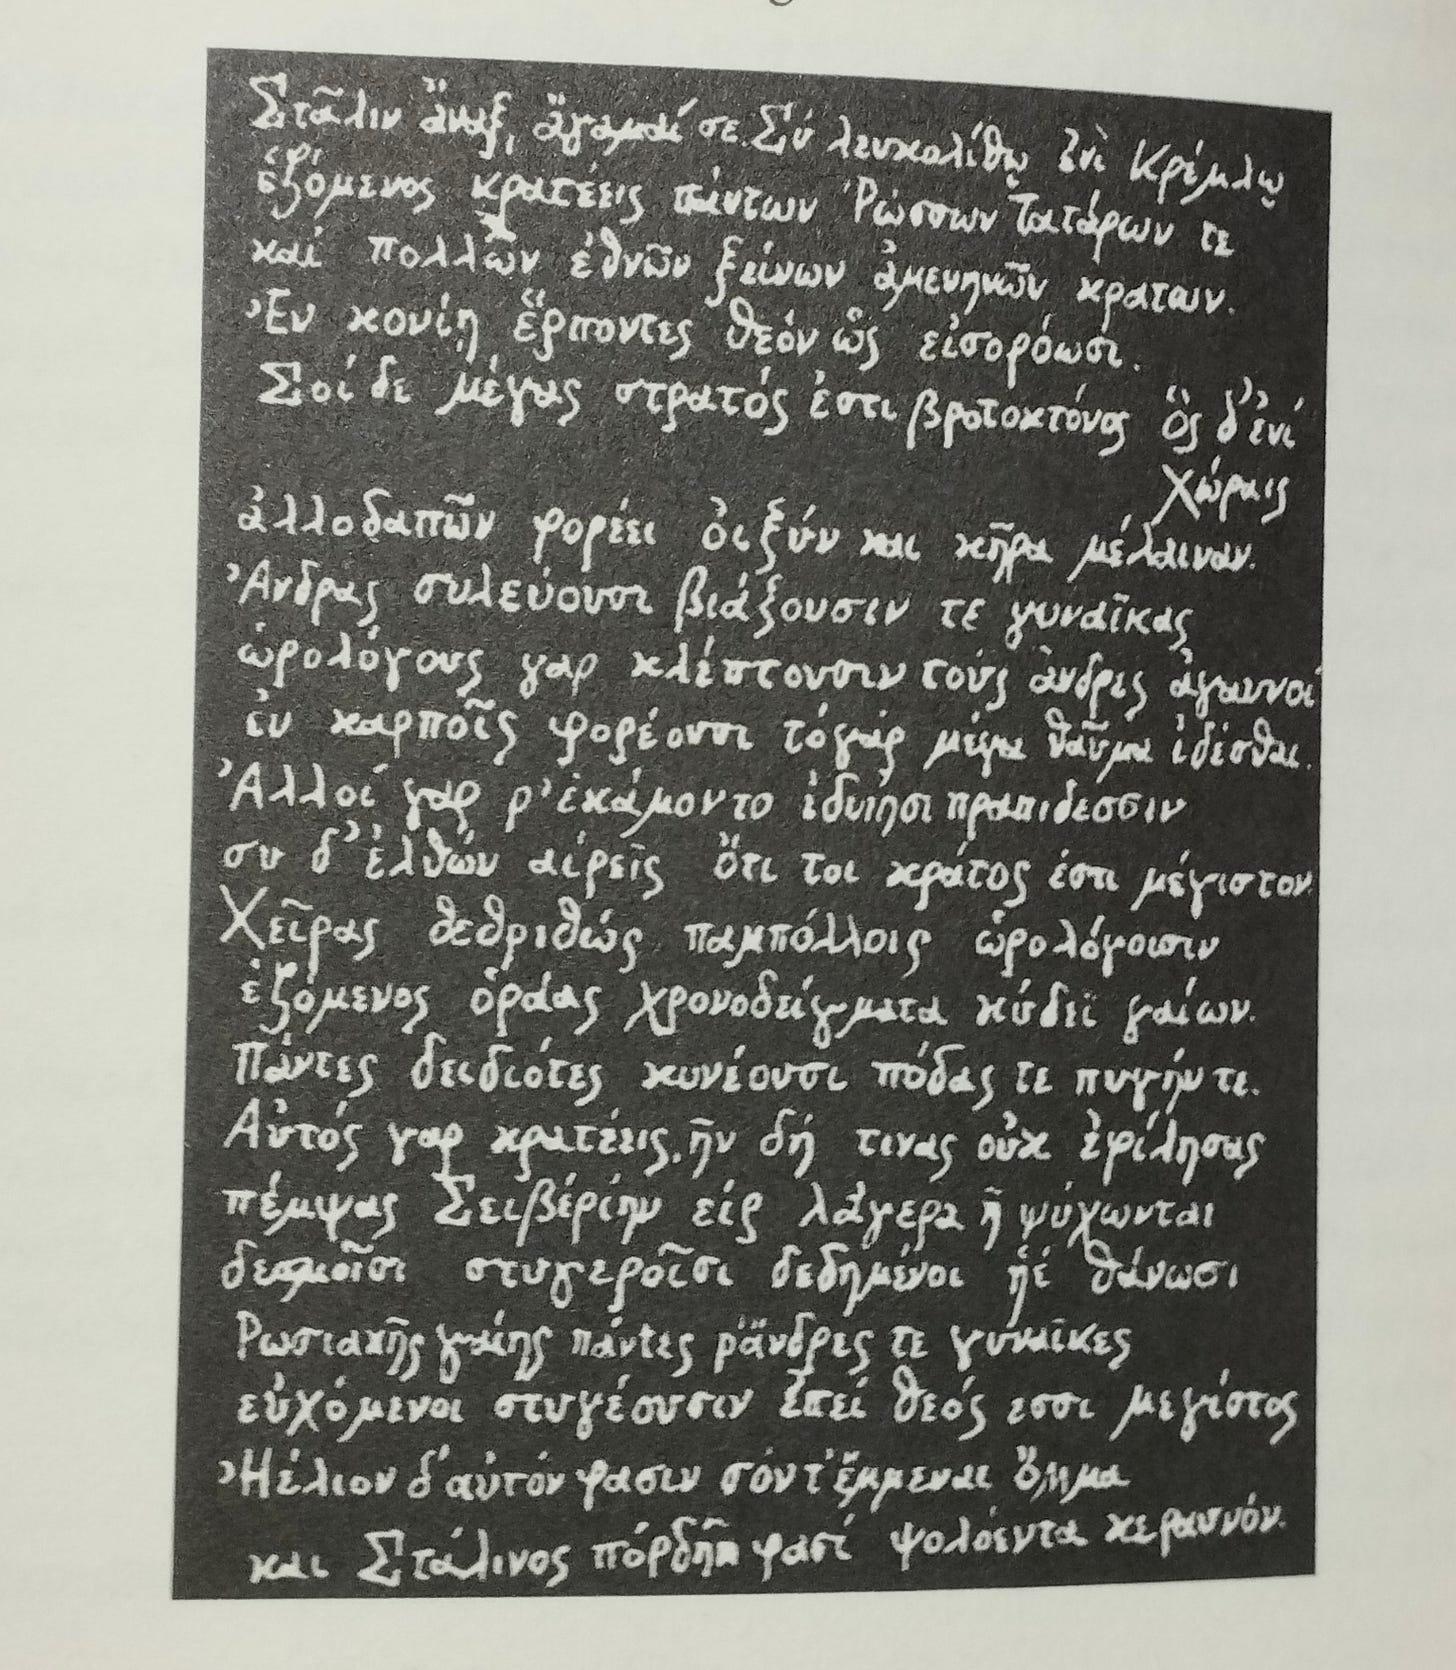 Στᾶλιν ἄναξ, ἄγαμαί σε. Σύ λευκολίθῳ ἐνὶ Κρέμλῳ
ἑζόμενος κρατέεις πάντων Ῥώσσων Τατάρων τε
καί πολλῶν ἐθνῶν ξείνων ἀμενηνῶν κρατων.
Ἐν κονίῃ ἕρποντες θεόν ὥς εἰσορόωσι.
Σοί δε μέγας στρατός ἐστι βροτοκτόνος ὅς δ' ἐνί
χώραις
ἀλλοδαπῶν φορέει οἱ ξύν και κῆρα μέλαιναν.
Ἀνδρας συλεύουσι βιάζουσιν τε γυναῖκας
ὡρολόγους γαρ κλέπτουσιν τούς ἀνδρες ἀγαυοί
ἐν καρποῖς φορέουσι τόγάρ μέγα θαῦμα ἰδέσθαι.
Ἀλλοί γαρ ρ' ἐκάμοντο ἰδυιῃσι πραπιδεσσιν
συ δ' ἐλθών αἱρεῖς ὅτι τοι κράτος ἐστι μέγιστον
Χεῖρας θεθριθώς παμπόλλοις ὡρολόγοισιν
ἑζόμενος ὁράας χρονοδείγματα κύδεϊ γαίων.
Πάντες δειδιότες κυνέουσι πόδας τε πυγήν τε.
Αὐτός γαρ κρατέεις, ἤν δή τινας οὐκ ἐφίλησας
πέμψας Σειβέρίην εἰς λάγερα ἤ ψύχωνται
δεσμοῖσι στυγεροῖσι δεδημένοι ἠέ θάνωσι
Ρωσιακῆς γαίης πάντες ῥἄνδρες τε γυναῖκες
εὐχόμενοι στυγέουσιν ἐπεί θεός εσσι μεγίστος
Ἠέλιον δ' αὐτόν φασιν σόν τ' ἔμμεναι ὄμμα
και Στάλινος πόρδην φασί ψολόεντα κεραυνόν.